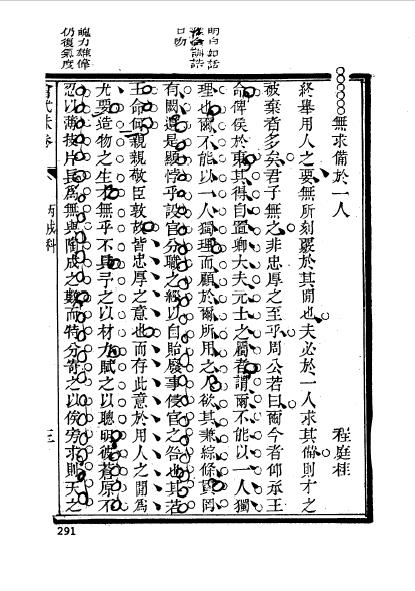 無求備於一人 程庭桂
終舉用人之要無所刻覈於其間也夫必於一人求其備則才之
被棄者多矣君子無之非忠厚之至乎周公若曰爾今者仰承王
命俾侯於東其得自置卿大夫元士之屬者謂爾不能以一人獨
理也爾不能以一人獨理而顧於爾所用之人欲其兼綜條貫罔
明白如話
訓誥
口吻
有闕遺是顯悖乎設官分職之經以自貽廢事侵官之咎也其若
王命何親親敬臣敦故皆忠厚之意也而存此意於用人之間爲
尤要造物之生才無乎不具予之以材力賦之以聰明彼蒼原不
忍以薄技片長爲無與隆成之數而特分寄之以俟旁求則天之
魄力雄偉
仍復氣度
會試朱卷 丙戌科 三
291